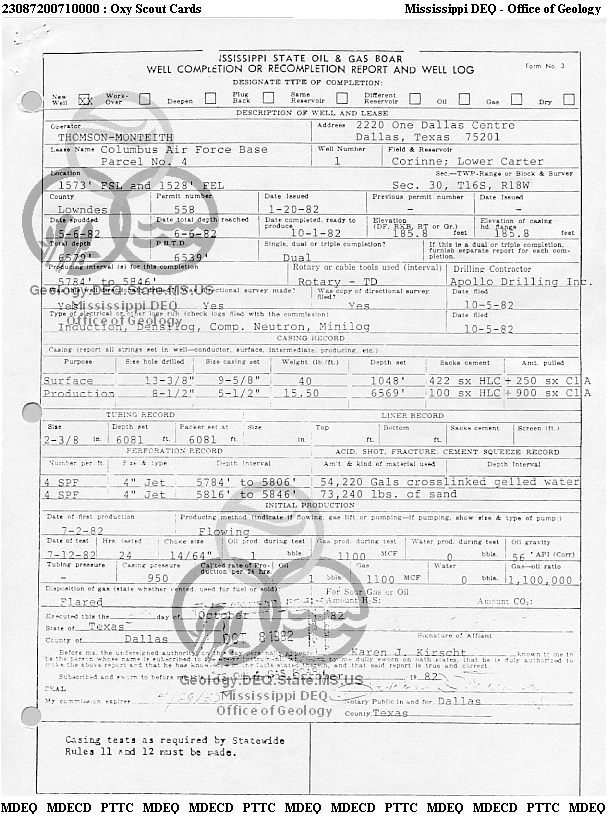 23087200710000 : Oxy Scout Cards Mississippi DEQ - Office of Geology
ISSISSIPPI STATE OIL & GAS BOAR
WELL COMPLETION OR RECOMPLETION REPORT AND WELL LOG Form No. 3
DESIGNATE TYPE OF COMPLETION:
New Well XX Work-Over Deepen Plug Back Same Reservoir Different Reservoir Oil Gas Dry
DESCRIPTION OF WELL AND LEASE
Operator Address 2220 One Dallas Centre
THOMSON-MONTEITH Dallas, Texas 75201
Lease Name Columbus Air Force Base Well Number Field & Reservoir
Parcel No. 4 1 Corinne; Lower Carter
Location Sec.—TWP-Range or Block & Survey
1573' FSL and 1528' FEL Sec. 30, T16S, R18W
County Permit number Date Issued Previous permit number Date Issued
Lowndes 558 1-20-82 - -
Date spudded Date total depth reached Date completed, ready to produce Elevation (DF, RKB, RT or Gr.) Elevation of casing hd. flange
5-6-82 6-6-82 10-1-82 185.8 feet 185.8 feet
Total depth P.B.T.D. Single, dual or triple completion? If this is a dual or triple completion, furnish separate report for each completion.
6579' 6539' Dual
Producing interval (s) for this completion Rotary or cable tools used (interval) Drilling Contractor
5784' to 5846' Rotary - TD Apollo Drilling Inc.
Geology.DEQ.State.MS.US
directional survey made? Was copy of directional survey filed? Date filed
Yes Yes Yes 10-5-82
Mississippi DEQ
Type of electrical or other logs run (check logs filed with the commission) Date filed
Office of Geology
Induction, Densilog, Comp. Neutron, Minilog 10-5-82
CASING RECORD
Casing (report all strings set in well—conductor, surface, intermediate, producing, etc.)
Purpose Size hole drilled Size casing set Weight (lb./ft.) Depth set Sacks cement Amt. pulled
Surface 13-3/8" 9-5/8" 40 1048' 422 sx HLC + 250 sx Cl A
Production 8-1/2" 5-1/2" 15.50 6569' 100 sx HLC + 900 sx Cl A
TUBING RECORD LINER RECORD
Size Depth set Packer set at Size Top Bottom Sacks cement Screen (ft.)
2-3/8 in. 6081 ft. 6081 ft. in. ft. ft.
PERFORATION RECORD ACID, SHOT, FRACTURE, CEMENT SQUEEZE RECORD
Number per ft. Size & type Depth Interval Am't. & kind of material used Depth Interval
4 SPF 4" Jet 5784' to 5806' 54,220 Gals crosslinked gelled water
4 SPF 4" Jet 5816' to 5846' 73,240 lbs. of sand
INITIAL PRODUCTION
Date of first production Producing method (indicate if flowing, gas lift or pumping—if pumping, show size & type of pump:)
7-2-82 Flowing
Date of test Hrs. tested Choke size Oil prod. during test Gas prod. during test Water prod. during test Oil gravity
7-12-82 24 14/64" 1 bbls. 1100 MCF 0 bbls. 56 ° API (Corr)
Tubing pressure Casing pressure Cal'ted rate of Production per 24 hrs. Oil Gas Water Gas—oil ratio
- 950 1 bbls. 1100 MCF 0 bbls. 1,100,000
Disposition of gas (state whether vented, used for fuel or sold): For Sour Gas or Oil
Flared Amount H2S: Amount CO2:
Executed this the day of October 82
State of Texas
County of Dallas OCT 8 1982 Signature of Affiant
Before me, the undersigned authority, on this day personally Karen J. Kirscht known to me to
be the person whose name is subscribed to by me duly sworn on oath states, that he is duly authorized to
make the above report and that he has knowledge of the facts stated therein, and that said report is true and correct.
Subscribed and sworn to before me 19 82
Geology.DEQ.State.MS.US
SEAL
Mississippi DEQ
My commission expires Notary Public in and for Dallas
Office of Geology
County, Texas
Casing tests as required by Statewide
Rules 11 and 12 must be made.
MDEQ MDECD PTTC MDEQ MDECD PTTC MDEQ MDECD PTTC MDEQ MDECD PTTC MDEQ